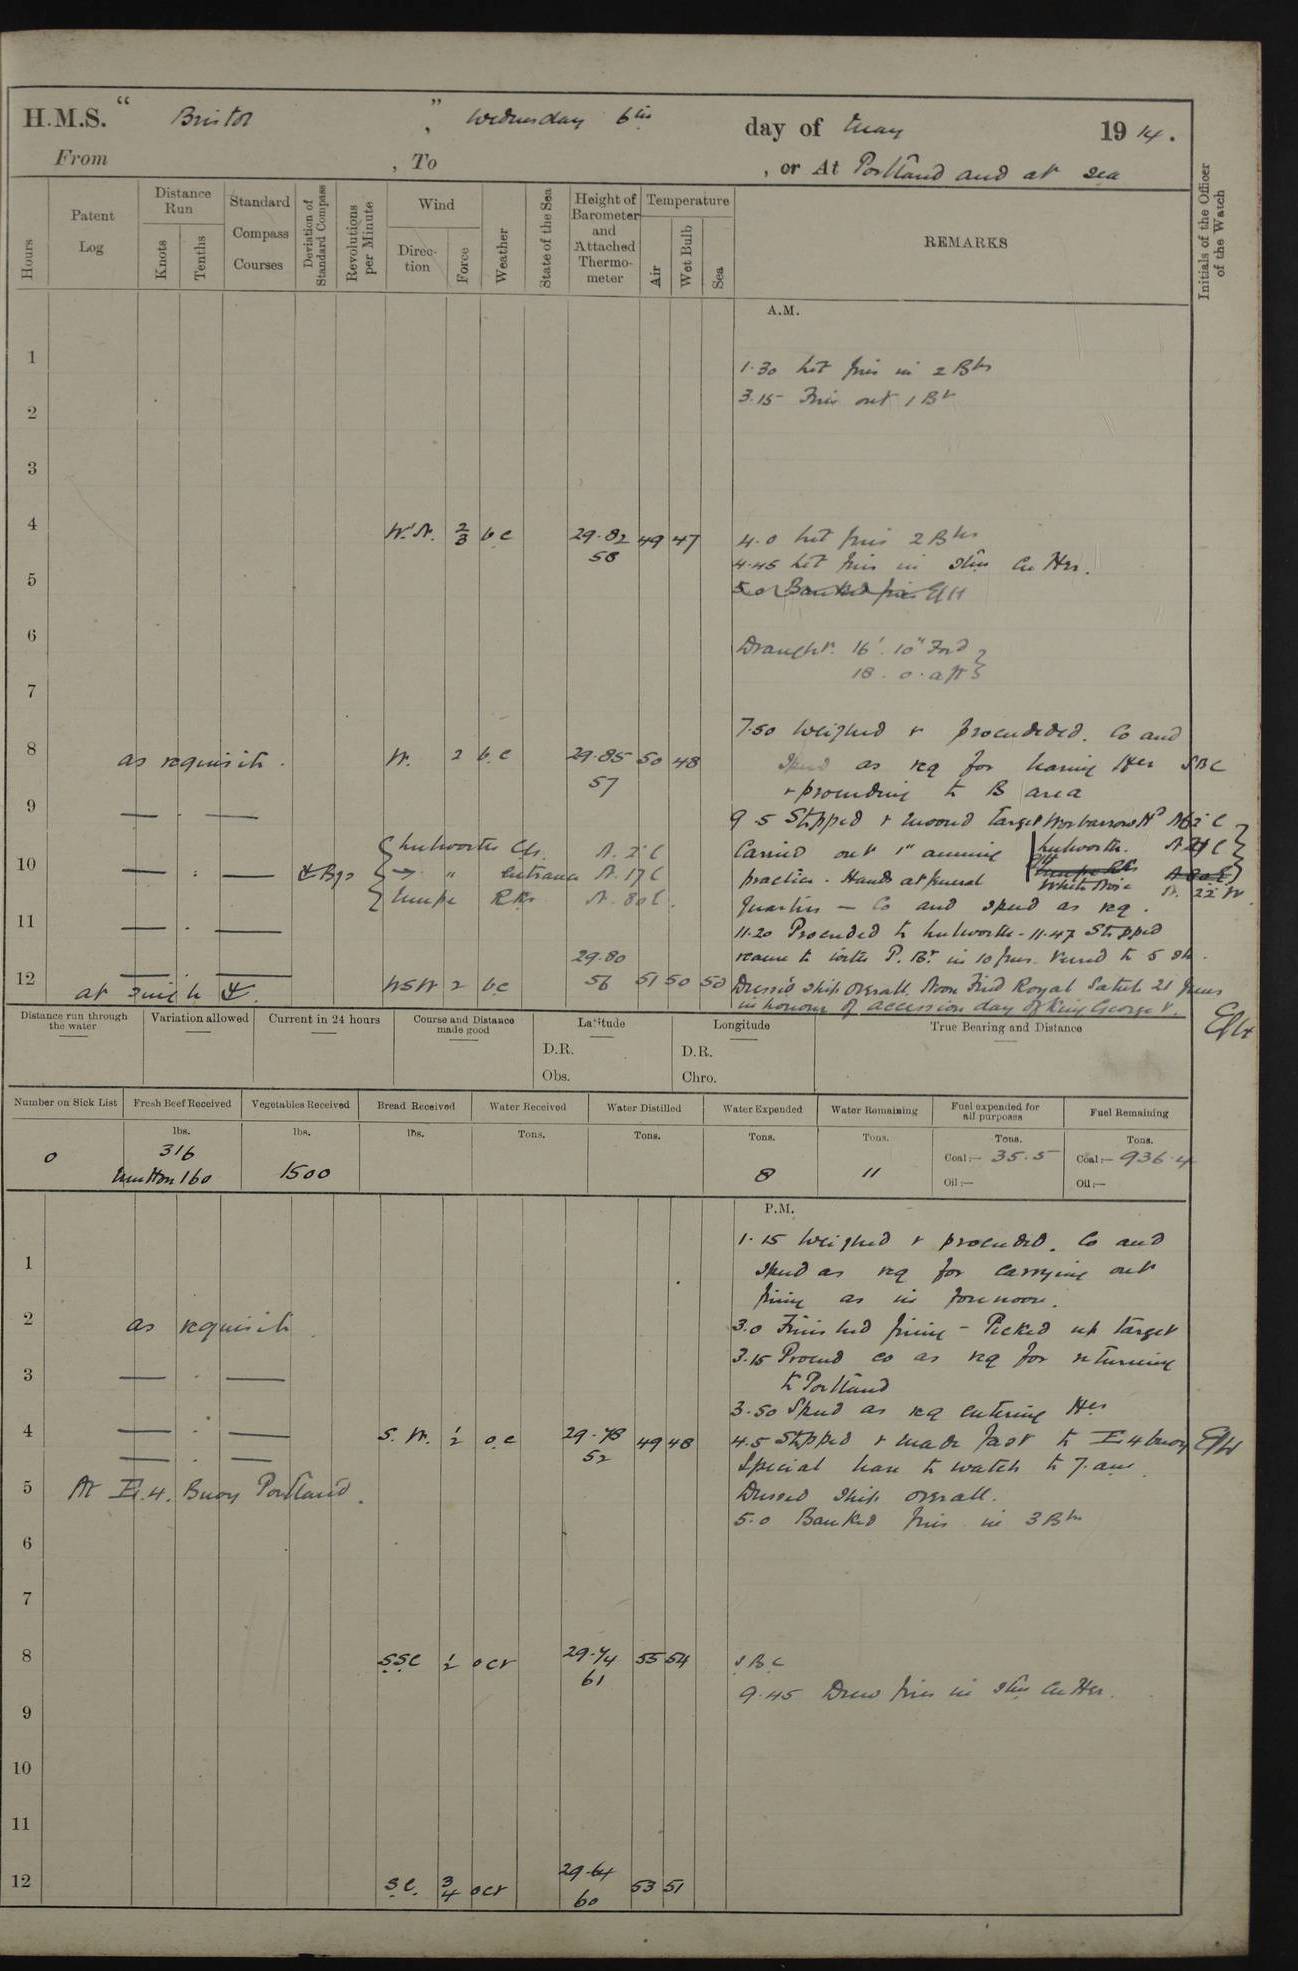 H.M.S. “ Bristol ” , Wednesday 6th day of May 1914.
From , To , or At Portland and at sea
Hours
Patent Log
Distance Run
Knots
Tenths
Standard Compass Courses
Deviation of Standard Compass
Revolutions per Minute
Wind
Direction
Force
Weather
State of the Sea
Height of Barometer and Attached Thermometer
Temperature
Air
Wet Bulb
Sea
REMARKS
Initials of the Officer of the Watch
A.M.
1 1.30 Lit fires in 2 Brs
2 3.15 Fires out 1 Br
3
4 W'N. 2/3 bc 29.82 49 47 4.0 Lit fires 2 Brs
58 4.45 Lit fires in Stm Cutter.
5 5.0 Banked fires
6 Draught. 16'. 10" Ford
18. 0. aft
7
7.50 Weighed & proceeded. Co and
8 as requisite. W. 2 b.c 29.85 50 48 speed as req for leaving Her SBC
57 & proceeding to B area
9 — . — 9.5 Stopped & moored target
Lulworth Cas. N. 2° E Carried out 1" aiming Lulworth.
10 — . — & Bgs " entrance N. 17 E practice. Hands at general
Lumpe Rks N. 80 E. quarters — Co and speed as req.
11 — . — 11.20 Proceeded to Lulworth - 11.47 Stopped
29.80 came to with P. Br. in 10 fms. Veered to 5 sh.
12 — . — WSW 2 bc 56 51 50 50 Dressed ship overall. Noon Fired Royal Salute 21 guns
at single in honour of accession day of King George V.
Distance run through the water
Variation allowed
Current in 24 hours
Course and Distance made good
Latitude
D.R.
Obs.
Longitude
D.R.
Chro.
True Bearing and Distance
Number on Sick List
Fresh Beef Received
Vegetables Received
Bread Received
Water Received
Water Distilled
Water Expended
Water Remaining
Fuel expended for all purposes
Fuel Remaining
lbs. lbs. lbs. Tons. Tons. Tons. Tons. Tons. Tons.
0 316 Coal:— 35.5 Coal:— 936.4
Mutton 160 1500 8 11 Oil:— Oil:—
P.M.
1.15 Weighed & proceeded. Co and
1 speed as req for carrying out
firing as in forenoon.
2 as requisite. 3.0 Finished firing - Picked up target
3 — . — 3.15 Proceed co as req for returning
to Portland
3.50 Speed as req entering Her
4 — . — S.W. 1/2 oc 29.78 49 48 4.5 Stopped & made fast to E4 buoy
— . — 52 Special leave to watch to 7. am.
5 At E.4. Buoy Portland. Dressed ship overall.
5.0 Banked fires in 3 Brs
6
7
8 SSE 1/2 ocr 29.74 55 54 SBC
61
9.45 Drew fires in Stm Cutter.
9
10
11
12 S.E. 3/4 ocr 29.64 53 51
60